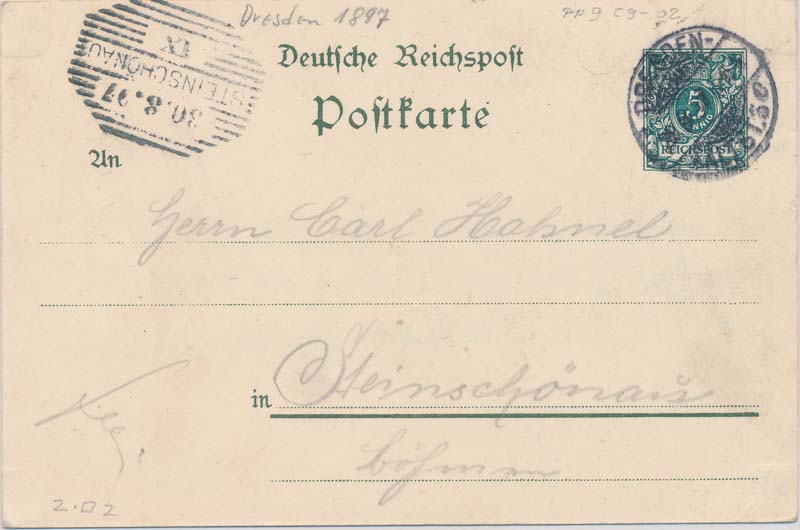 Dresden 1897
PP9 C9-02
STEINSCHÖNAU
30.8.97
IX
Deutsche Reichspost
Postkarte
DRESDEN-
5
PFENNIG
REICHSPOST
An
Herrn Carl Hahnel
in Steinschönau
Böhmen
2.02